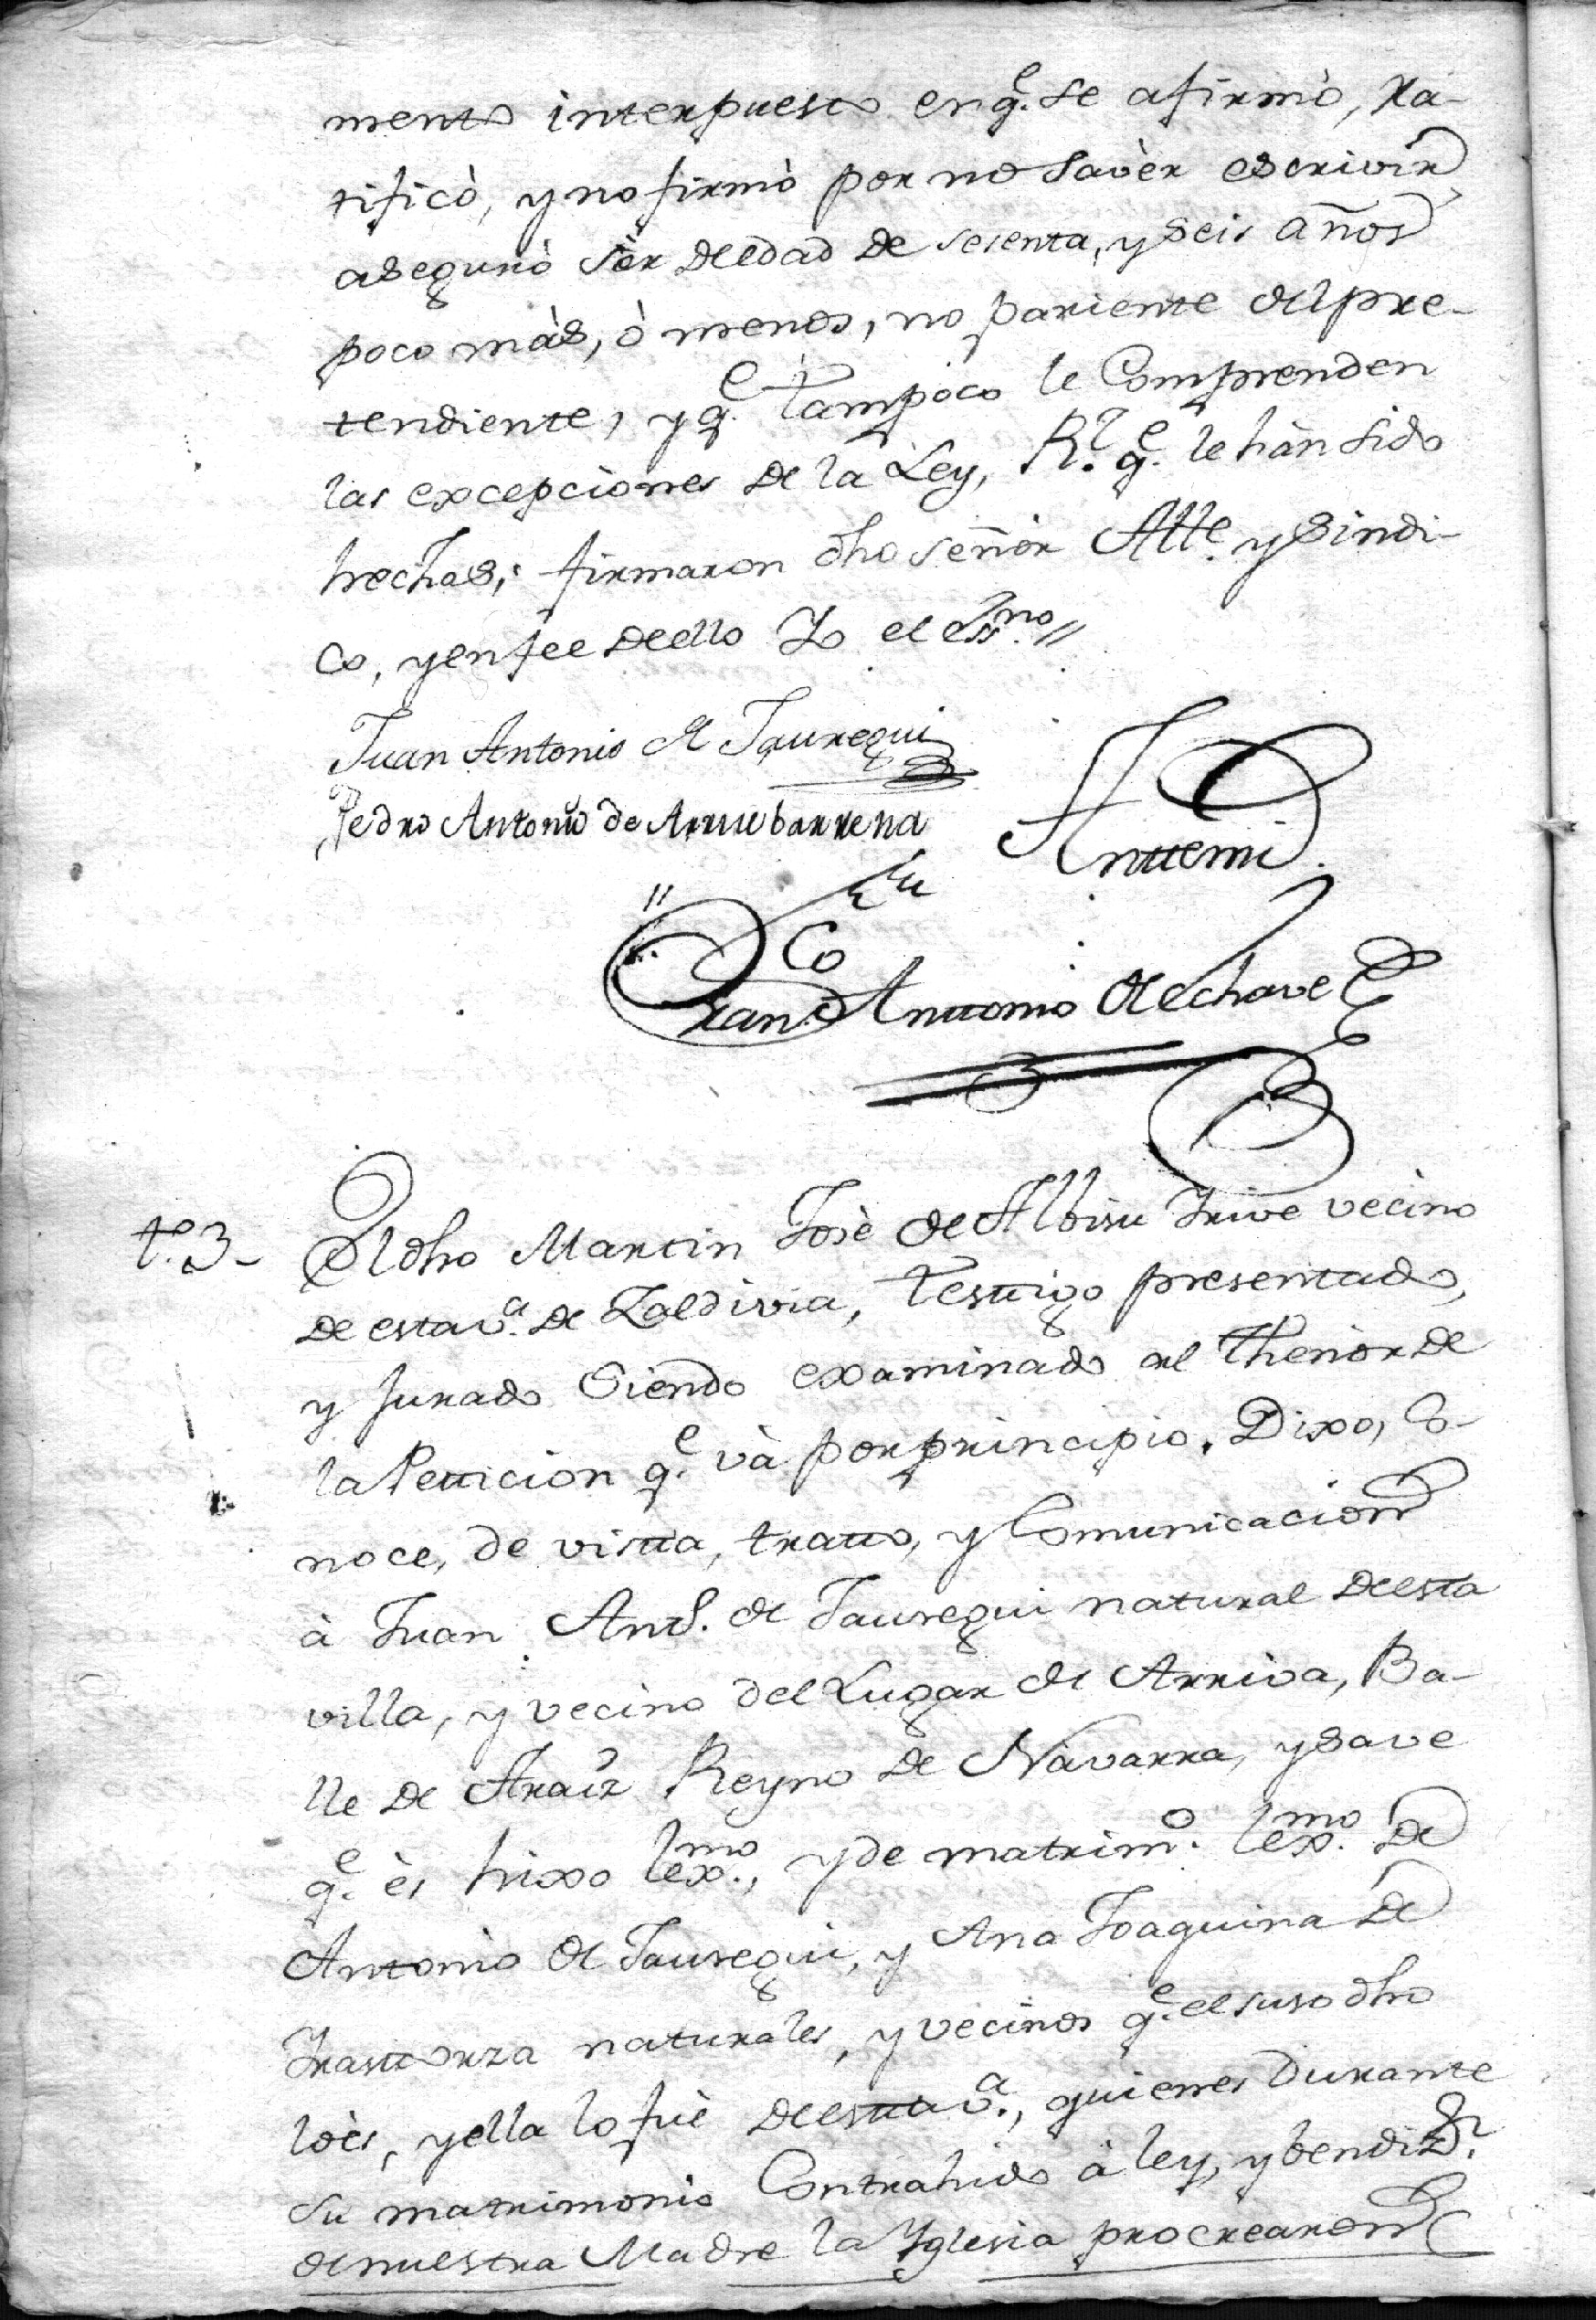 mento interpuesto en q.e se afirmò, Ra-
tificò, y no firmò por no savèr escrivir
asegurò sèr de edad de sesenta, y seis años
poco màs, ò menos, no pariente del pre-
tendiente, y q.e tampoco le Comprenden
las excepciones de la Ley, R.l q.e le hàn sido
hechas; firmaron dho señòr Alle. y Sindi-
co, y en fee de ello Yo el Essno.//
Juan Antonio de Jauregui
Pedro Antonio de Arrue barrena
Anttemi
Fran.co Anttonio de Echave
t.o 3- El dho Martin Josè de Albisu Yrive vecino
de esta v.a de Zaldivia, testtigo presentado,
y Jurado Siendo examinado al thenòr de
la Petticion q.e và por principio, Dixo, Co-
noce, de vistta, tratto, y Comunicacion
à Juan Antt.o de Jauregui natural de esta
villa, y vecino del Lugar de Arriva, Ba-
lle de Araiz Reyno de Navarra, y save
q.e ès hixo lex.mo, y de matrim.o lex.mo de
Antonio de Jauregui, y Ana Joaquina de
Yrastorza naturales, y vecinos q.e el suso dho
lo ès, y ella lo fuè de estta v.a, quienes durante
su matrimonio Contrahido à ley, y bendiz.n
de nuestra Madre la Yglesia procrearon